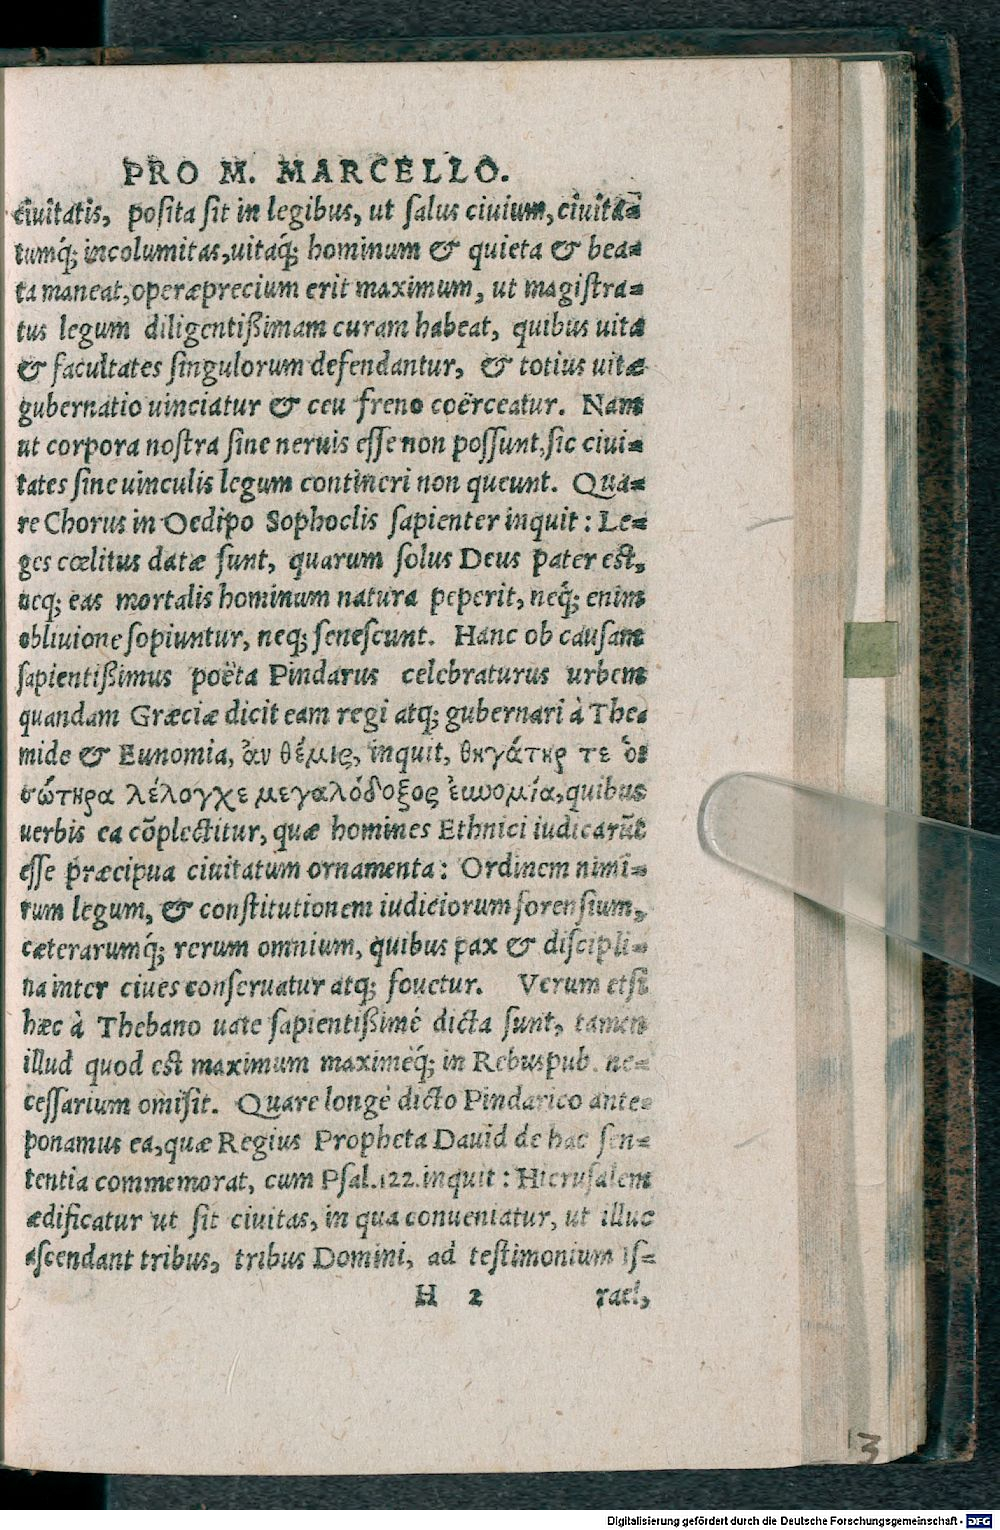 PRO M. MARCELLO.
ciuitatis, posita sit in legibus, ut salus ciuium, ciuita=
tumq́; incolumitas, uitaq́; hominum & quieta & bea=
ta maneat, operæprecium erit maximum, ut magistra=
tus legum diligentißimam curam habeat, quibus uita
& facultates singulorum defendantur, & totius uitæ
gubernatio uinciatur & ceu freno coërceatur. Nam
ut corpora nostra sine neruis esse non possunt, sic ciui=
tates sine uinculis legum contineri non queunt. Qua=
re Chorus in Oedipo Sophoclis sapienter inquit: Le=
ges cœlitus datæ sunt, quarum solus Deus pater est,
neq; eas mortalis hominum natura peperit, neq́; enim
obliuione sopiuntur, neq; senescunt. Hanc ob causam
sapientißimus poëta Pindarus celebraturus urbem
quandam Græciæ dicit eam regi atq; gubernari à The=
mide & Eunomia, ἃν θέμις, inquit, θυγάτηρ τε ὁι
σώτηρα λέλογχε μεγαλόδοξος ἐυνομία, quibus
uerbis ea cōplectitur, quæ homines Ethnici iudicarūt
esse præcipua ciuitatum ornamenta: Ordinem nimi=
rum legum, & constitutionem iudiciorum forensium,
cæterarumq́; rerum omnium, quibus pax & discipli=
na inter ciues conseruatur atq; fouetur. Verum etsi
hæc à Thebano uate sapientißimè dicta sunt, tamen
illud quod est maximum maximèq́; in Rebuspub. ne=
cessarium omisit. Quare longè dicto Pindarico ante=
ponamus ea, quæ Regius Propheta Dauid de hac sen=
tentia commemorat, cum Psal. 122. inquit: Hierusalem
ædificatur ut sit ciuitas, in qua conueniatur, ut illuc
ascendant tribus, tribus Domini, ad testimonium Is=
H 2 rael,
13
Digitalisierung gefördert durch die Deutsche Forschungsgemeinschaft - DFG